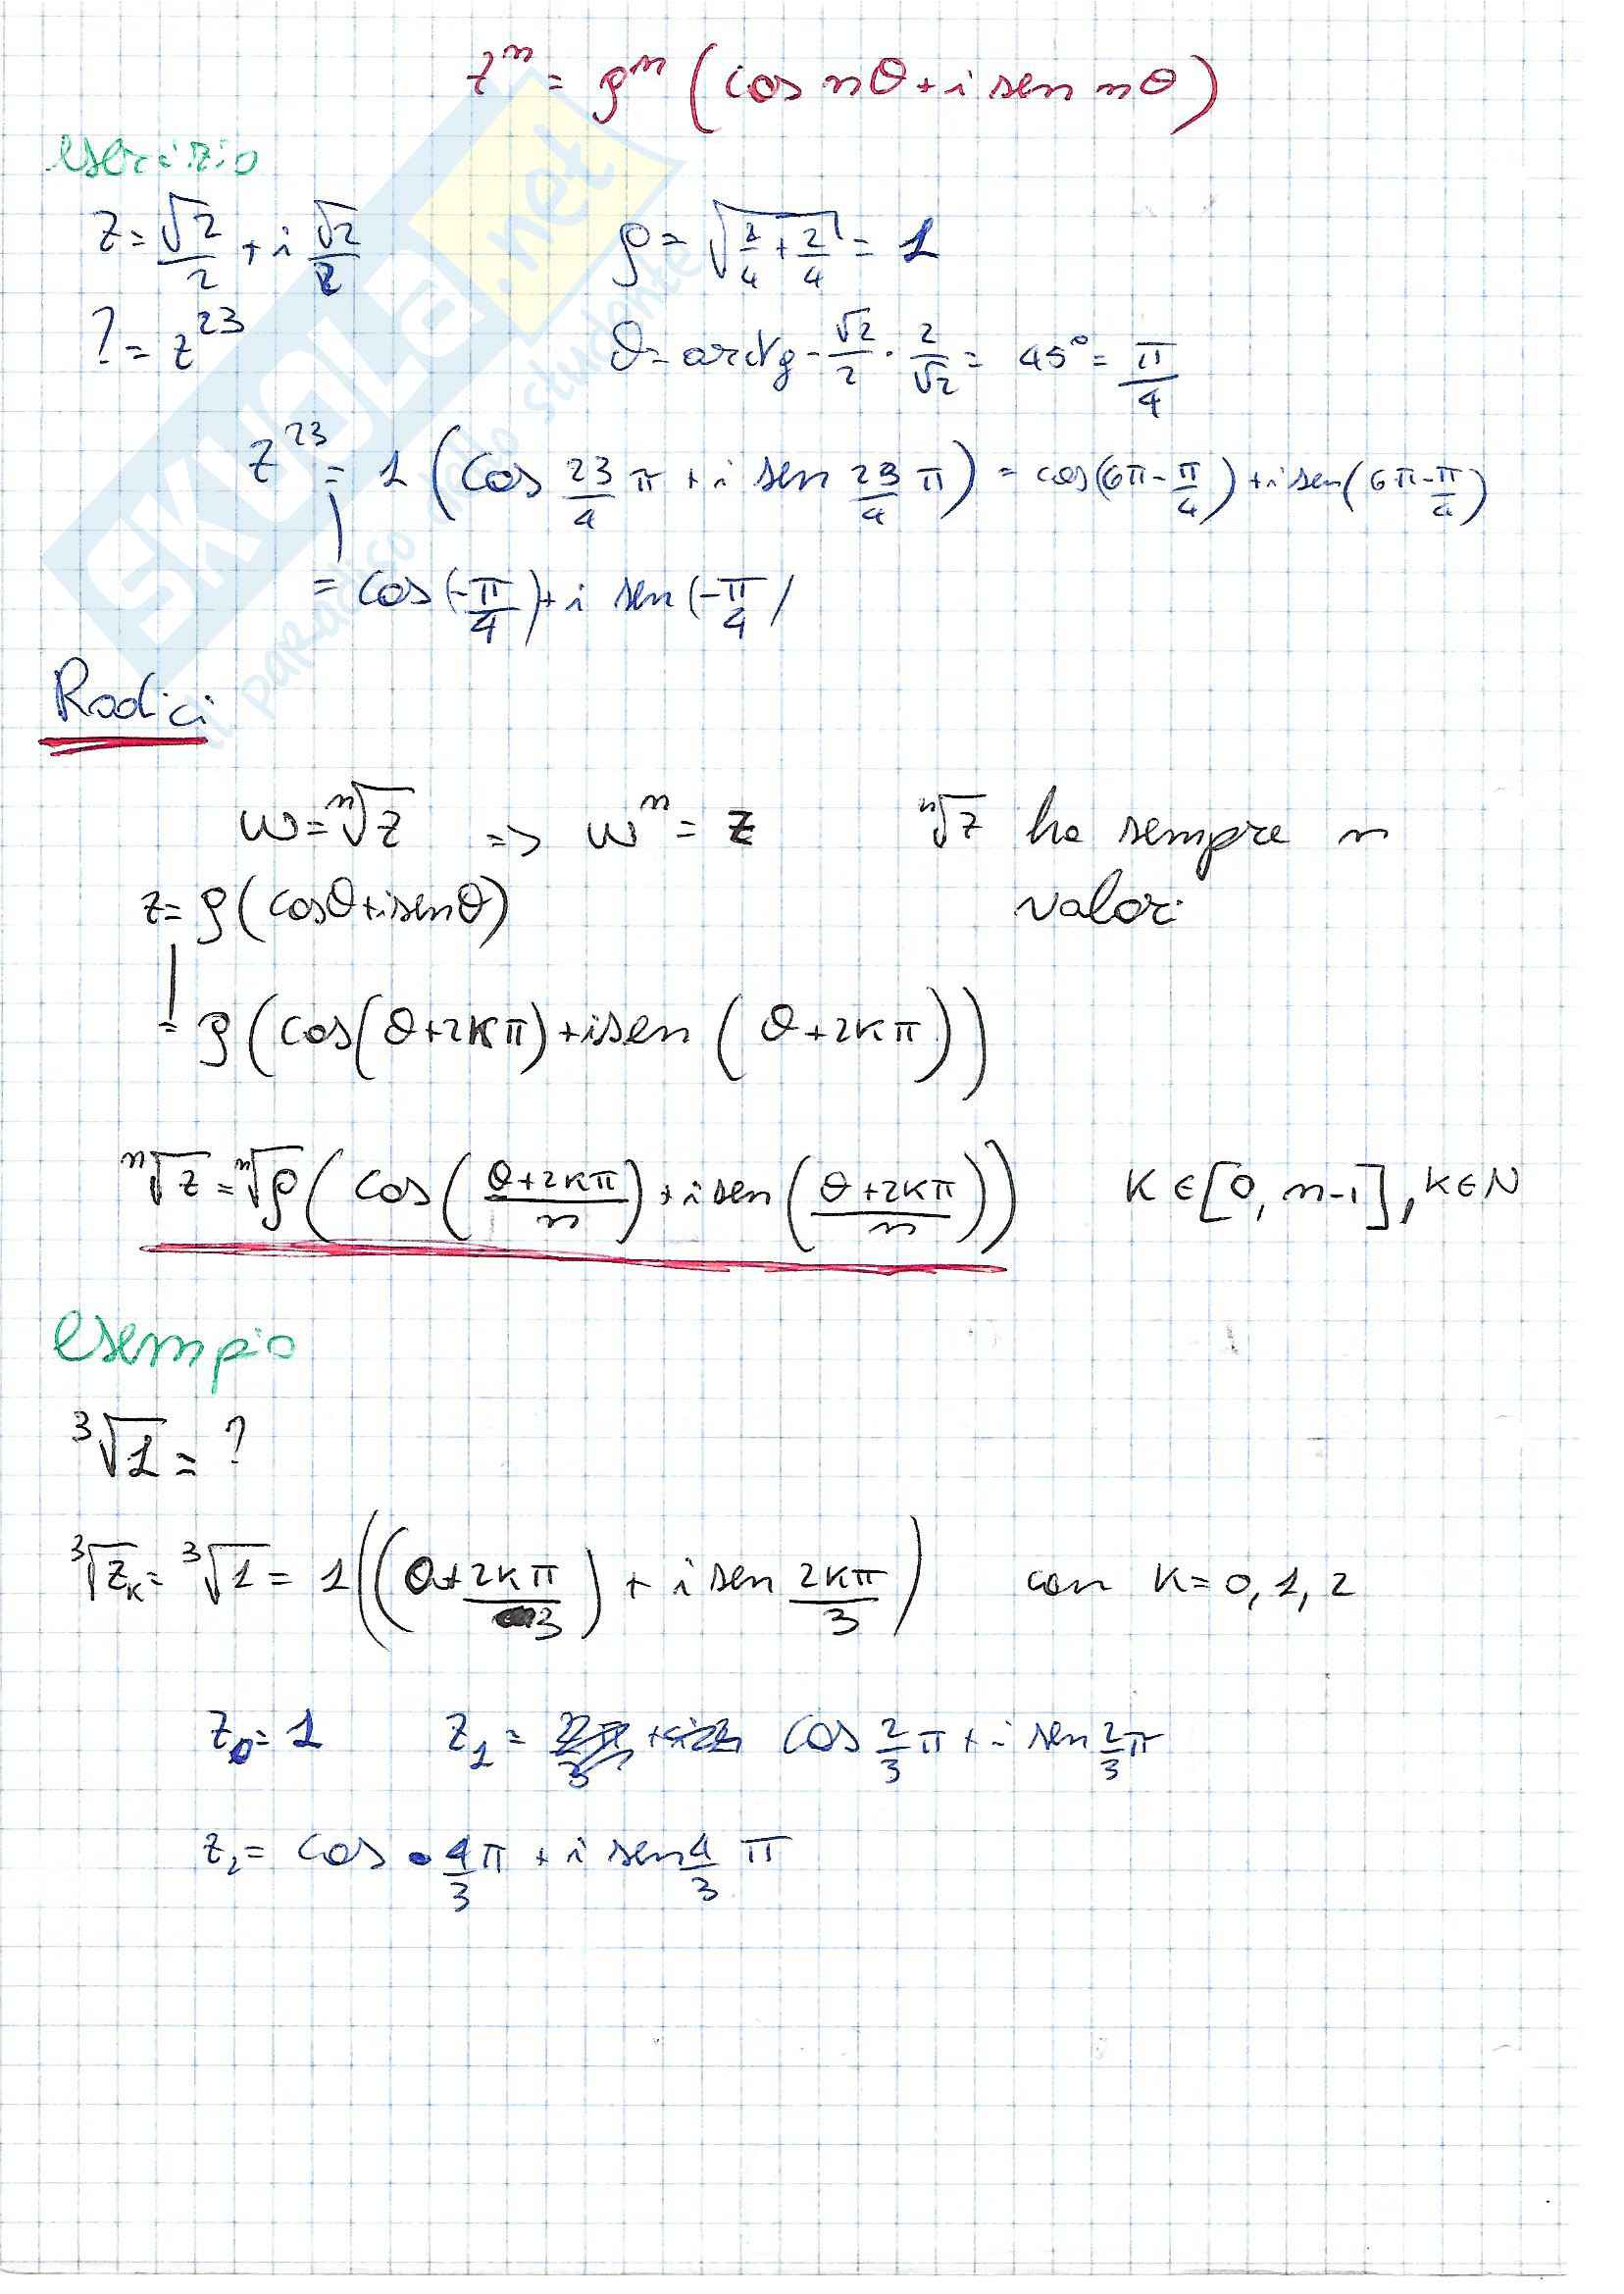 zⁿ = ρⁿ (cos nθ + i sen nθ)
esercizio
z = √2/2 + i √2/2    ρ = √(2/4 + 2/4) = 1
? = z²³    θ = arctg - √2/2 · 2/√2 = 45° = π/4
z²³ = 1 (cos 23/4 π + i sen 23/4 π) = cos(6π - π/4) + i sen(6π - π/4)
= cos(-π/4) + i sen(-π/4/
Radici
w = ⁿ√z => wⁿ = z    ⁿ√z ha sempre n
z = ρ(cosθ + i senθ)    valori
= ρ(cos(θ + 2kπ) + i sen(θ + 2kπ))
ⁿ√z = ⁿ√ρ (cos((θ + 2kπ)/n) + i sen((θ + 2kπ)/n))    K ∈ [0, n-1], K ∈ N
esempio
³√1 = ?
³√z_K = ³√1 = 1((0 + 2kπ/3) + i sen 2kπ/3)    con K = 0, 1, 2
z₀ = 1    z₁ = cos 2/3 π + i sen 2/3 π
z₂ = cos 4/3 π + i sen 4/3 π
SKUOLA.net
il paradiso dello studente